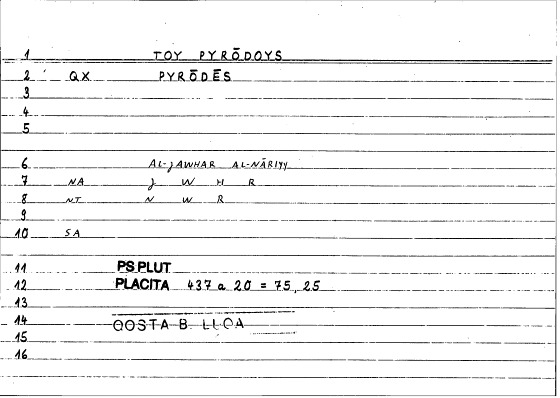 1 TOY PYRŌDOYS
2 QX PYRŌDĒS
3
4
5
6 AL-JAWHAR AL-NĀRIYY
7 NA J W H R
8 NT N W R
9
10 SA
11 PS PLUT
12 PLACITA 437 a 20 = 75, 25
13
14 QOSTA B. LUQA
15
16